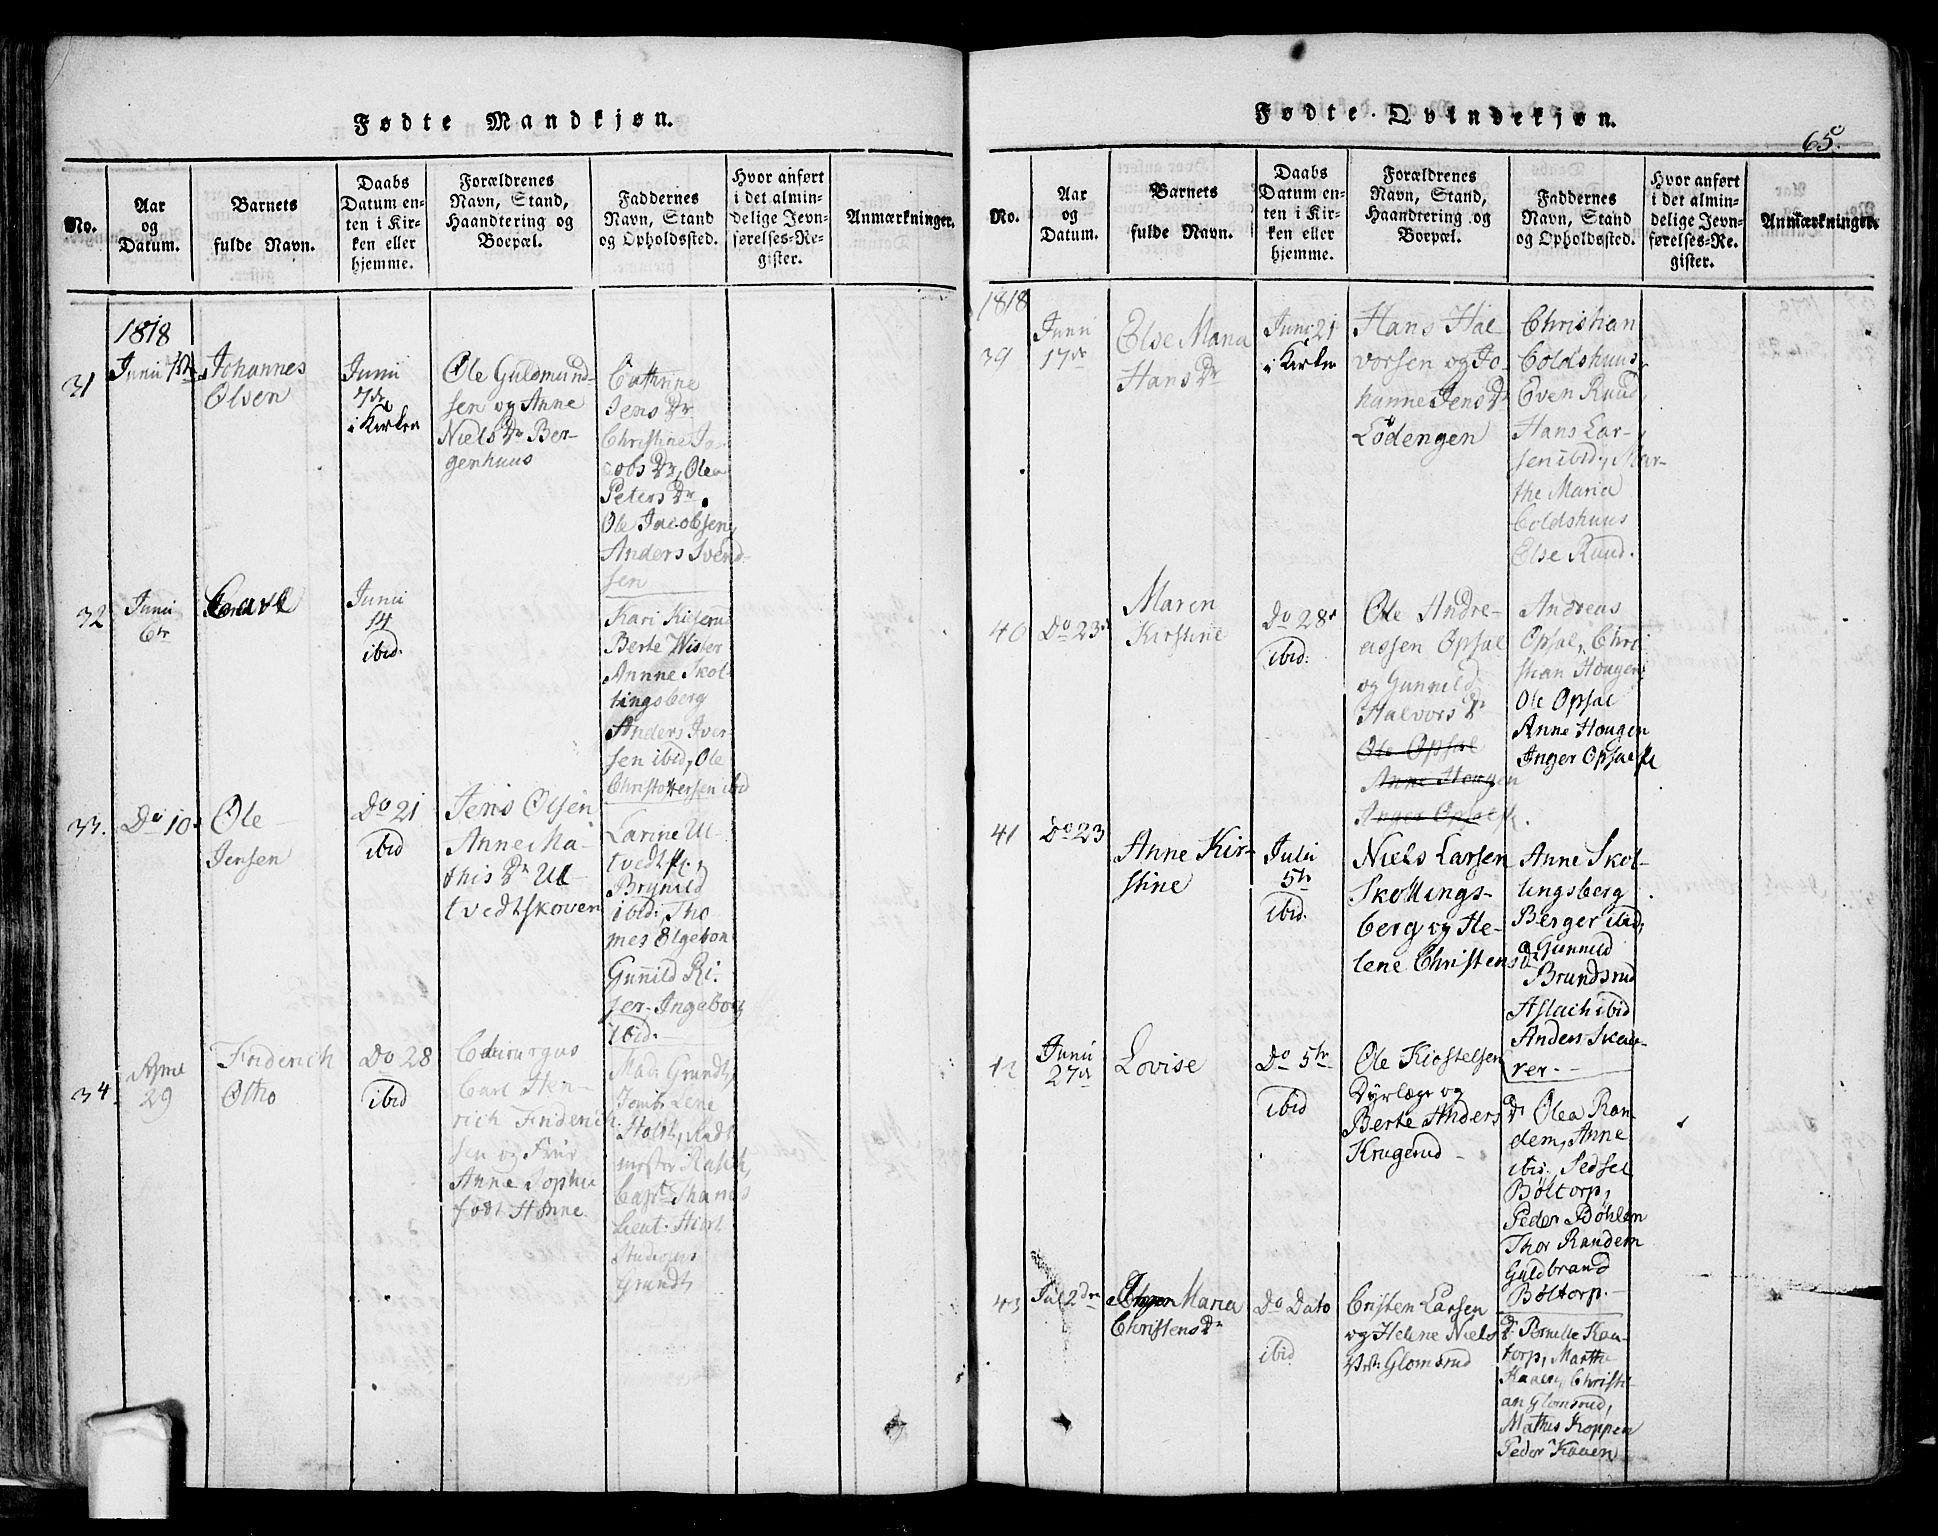 Fødte Mandkjøn.
No.
Aar
og
Datum.
Barnets
fulde Navn.
Daabs
Datum en-
ten i Kir-
ken eller
hjemme.
Forældrenes
Navn, Stand,
Haandtering og
Boepæl.
Faddernes
Navn, Stand
og Opholdssted.
Hvor anført
i det almin-
delige Jevn-
førelses-Re-
gister.
Anmærkninger.
1818
31
Junii
Johannes
Olsen
Junii
7de
i Kirken
Ole Guldmund-
sen og Anne
Niels Dr Ber-
genhuus
Cathrine
Jens Dr
Christine Ja-
cobs Dr, Olea
Peters Dr
Ole Jacobsen,
Anders Svend-
sen
32
Junii
6te
Junii
14
ibid.
Kari
Berte
Annne Skol-
lingsberg
Anders Iver-
sen ibid, Ole
Christoffersen ibid
33.
Do 10
Ole
Jensen
Do 21
ibid
Jens Olsen
Anne Ma-
this Dr Ul-
tvedtskoven
Larine Ul-
tvedt
Brynild
ibid., Tho-
mes
Gunnild Ri-
ser, Ingeborg
ibid.
34.
April
29
Friderich
Otho
Do 28
ibid
Chirurgus
Carl Hen-
rich Friderich-
sen og Frue
Anne Sophie
født
Mad. Grundt,
Jomfr. Lene
Holst, Ridt-
mester Rasch,
Capt.
Lieut.
Studiosus
Grundt
Fødte Qvindekjøn.
65.
No.
Aar
og
Datum.
Barnets
fulde Navn.
Daabs
Datum en-
ten i Kir-
ken eller
hjemme.
Forældrenes
Navn, Stand,
Haandtering og
Boepæl.
Faddernes
Navn, Stand
og Opholdssted.
Hvor anført
i det almin-
delige Jevn-
førelses-Re-
gister.
Anmærkninger.
1818
39
Junii
17de
Else Maria
Hans Dr
Juni 21
i Kirken
Hans Hal-
vorsen og Jo-
hanne Jens Dr
Lødengen
Christian
Coldshuus,
Even Ruud,
Hans Lar-
sen ibid, Mar-
the Maria
Coldshuus
Else Ruud.
40
Do 23de
Maren
Kirstine
Do 28de
ibid:
Ole Andre-
assen Opsal
og Gunnild
Halvors Dr
Ole Opsal
Anne Hougen
Inger Opsal
Andreas
Opsal, Chri-
stian Hougen
Ole Opsal
Anne Hougen
Inger Opsal
41
Do 23
Anne Kir-
stine
Julii
5te
ibid.
Niels Larsen
Skollings-
berg og He-
lene Christens Dr
Anne Skol-
lingsberg
Berger ibid,
Gunnild
Brundsrud
Aslach ibid
Anders Skau-
rer.
42
Junii
27de
Lovise
Do 5te
ibid
Ole Kiostelsen
Dyrlæge og
Berte Anders Dr
Krugerud
Olea Ran-
dem, Anne
ibid, Sedsel
Bøltorp,
Peder Bøhlem
Thor Randem
Guldbrand
Bøltorp.
43
Jul 2den
Maria
Christens Dr
Do Dato
ibid
Cristen Larsen
og Helene Niels Dr
Glomsrud
Pernille Kau-
torp, Marthe
Kaaen, Christi-
an Glomsrud,
Mathis Koppen
Peder Kaaen